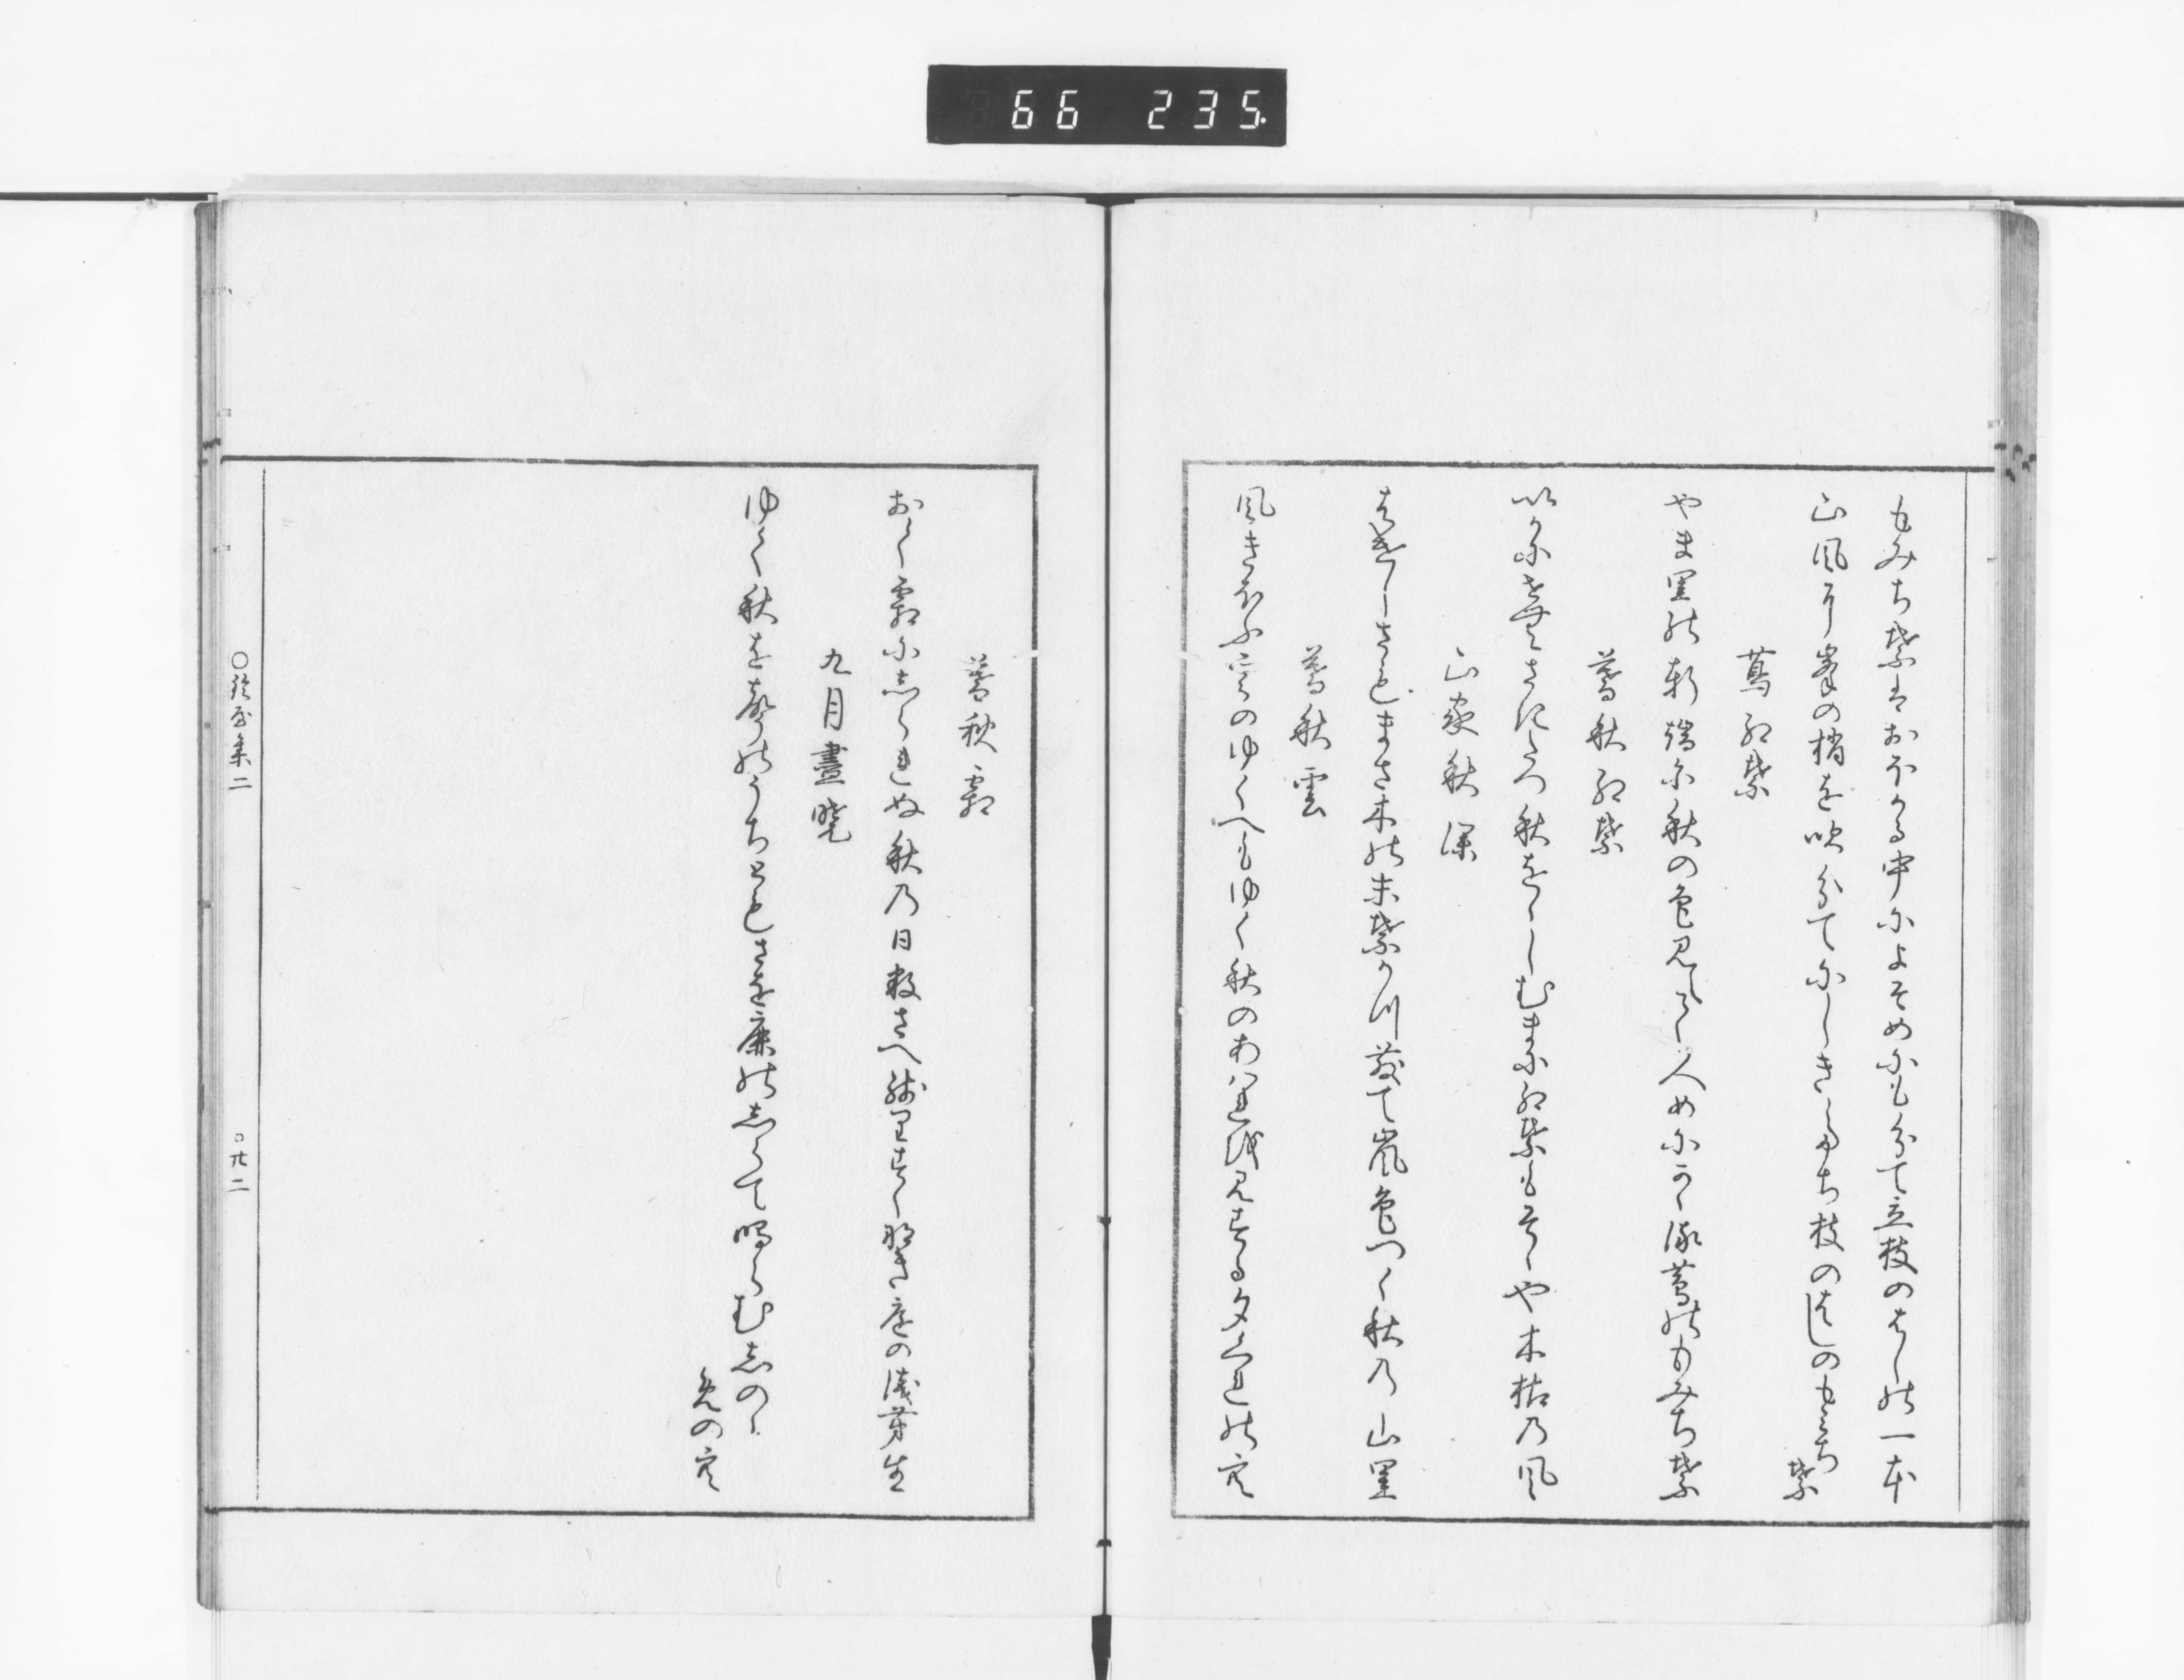 もみち葉はおほかる中によそめにも分て立枝のはしの一本
山風に峯の梢を吹分てにしきたち枝のはしのもみち葉
蔦紅葉
やま里の軒端に秋の色見えて人めにかゝる蔦のもみち葉
暮秋紅葉
いかにせむ秋をゝしむまに紅葉もそゝや木枯の風
山家秋深
はけしさもまさ木の末葉かつ散て嵐色つく秋の山里
暮秋雲
風きほふ雲のゆくへもゆく秋のあはれを見する夕くれの空
暮秋霜
おく霜にしられぬ秋の日数さへ残りすくなき庭の浅芽生
九月盡暁
ゆく秋を聲のうちともさを鹿のしらて鳴らむしのゝめの空
○鈴屋集二
○廿二
66 235